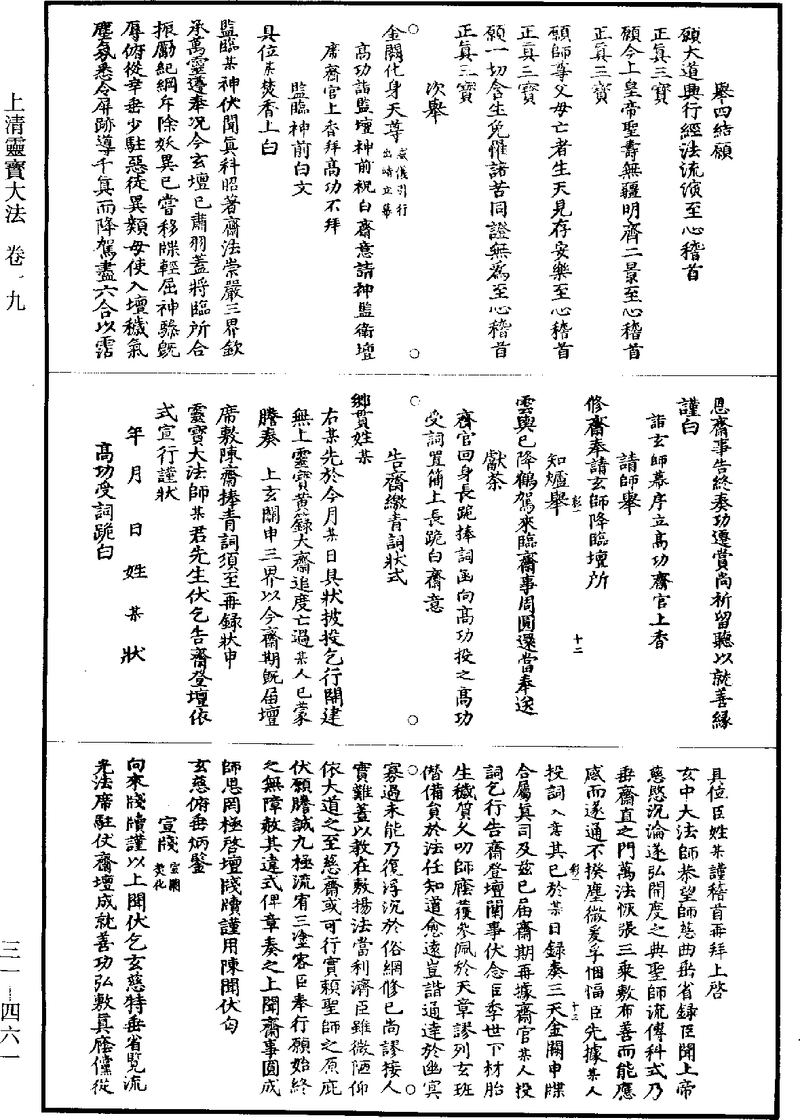 上清靈寶大法　卷一九
舉四結願
願大道興行經法流演至心稽首
正真三寶
願今上皇帝聖壽無疆明齊二景至心稽首
正真三寶
願師尊父母亡者生天見存安樂至心稽首
正真三寶
願一切含生免離諸苦同證無為至心稽首
正真三寶
次舉
金闕化身天尊威儀引行出時立幕
高功詣監壇神前祝白齋意請神監衛壇
席齋官上香拜高功不拜
監臨神前白文
具位某焚香上白
監臨某神伏聞真科昭著齋法崇嚴三界欽
承萬靈遵奉况今玄壇已肅羽蓋將臨所合
振勵紀綱斥除妖異已嘗移牒輕屈神驂既
辱俯從幸垂少駐惡徒異類毋使入壇穢氣
塵氛悉令屏跡導千真而降駕盡六合以霑
恩齋事告終奏功遷賞尚祈留聽以就善緣
謹白
詣玄師幕序立高功齋官上香
請師舉
修齋奉請玄師降臨壇所
知爐舉
雲輿已降鶴駕來臨齋事周圓還當奉送
獻茶
齋官回身長跪捧詞函向高功投之高功
受詞置簡上長跪白齋意
告齋繳青詞狀式
鄉貫姓某
右某先於今月某日具狀披投乞行開建
無上靈寶黃籙大齋追度亡過某人已蒙
謄奏　上玄關申三界以今齋期既屆壇
席敷陳齋捧青詞須至再錄狀申
靈寶大法師某君先生伏乞告齋登壇依
式宣行謹狀
年　月　日　姓　某　狀
高功受詞跪白
十二
具位臣姓某謹稽首再拜上啓
玄中大法師恭望師慈曲垂省錄臣聞上帝
慈愍沉淪遂弘開度之典聖師流傳科式乃
垂齋直之門萬法恢張三乘敷布善而能應
感而遂通不揆塵微爰孚悃愊臣先據某人
投詞入意其已於某日錄奏三天金闕申牒
合屬真司及茲已屆齋期再據齋官某人投
詞乞行告齋登壇關事伏念臣季世下材胎
生穢質久叨師廕獲參佩於天章謬列玄班
僭備員於法任知道愈遠豈諧通達於幽冥
寡過未能乃復浮沉於俗網修已尚謬接人
實難蓋以教在敷揚法當利濟臣雖微陋仰
依大道之至慈齋或可行實賴聖師之原庇
伏願膽誠九極流宥三塗容臣奉行願始終
之無障赦其違式俾章奏之上聞齋事圓成
師恩罔極啓壇牋牘謹用陳聞伏匄
玄慈俯垂炳鑒
宣牋宣開焚化
向來牋牘謹以上聞伏乞玄慈特垂省覽流
光法席駐仗齋壇成就善功弘敷真廕儻從
十三
三一—四六一